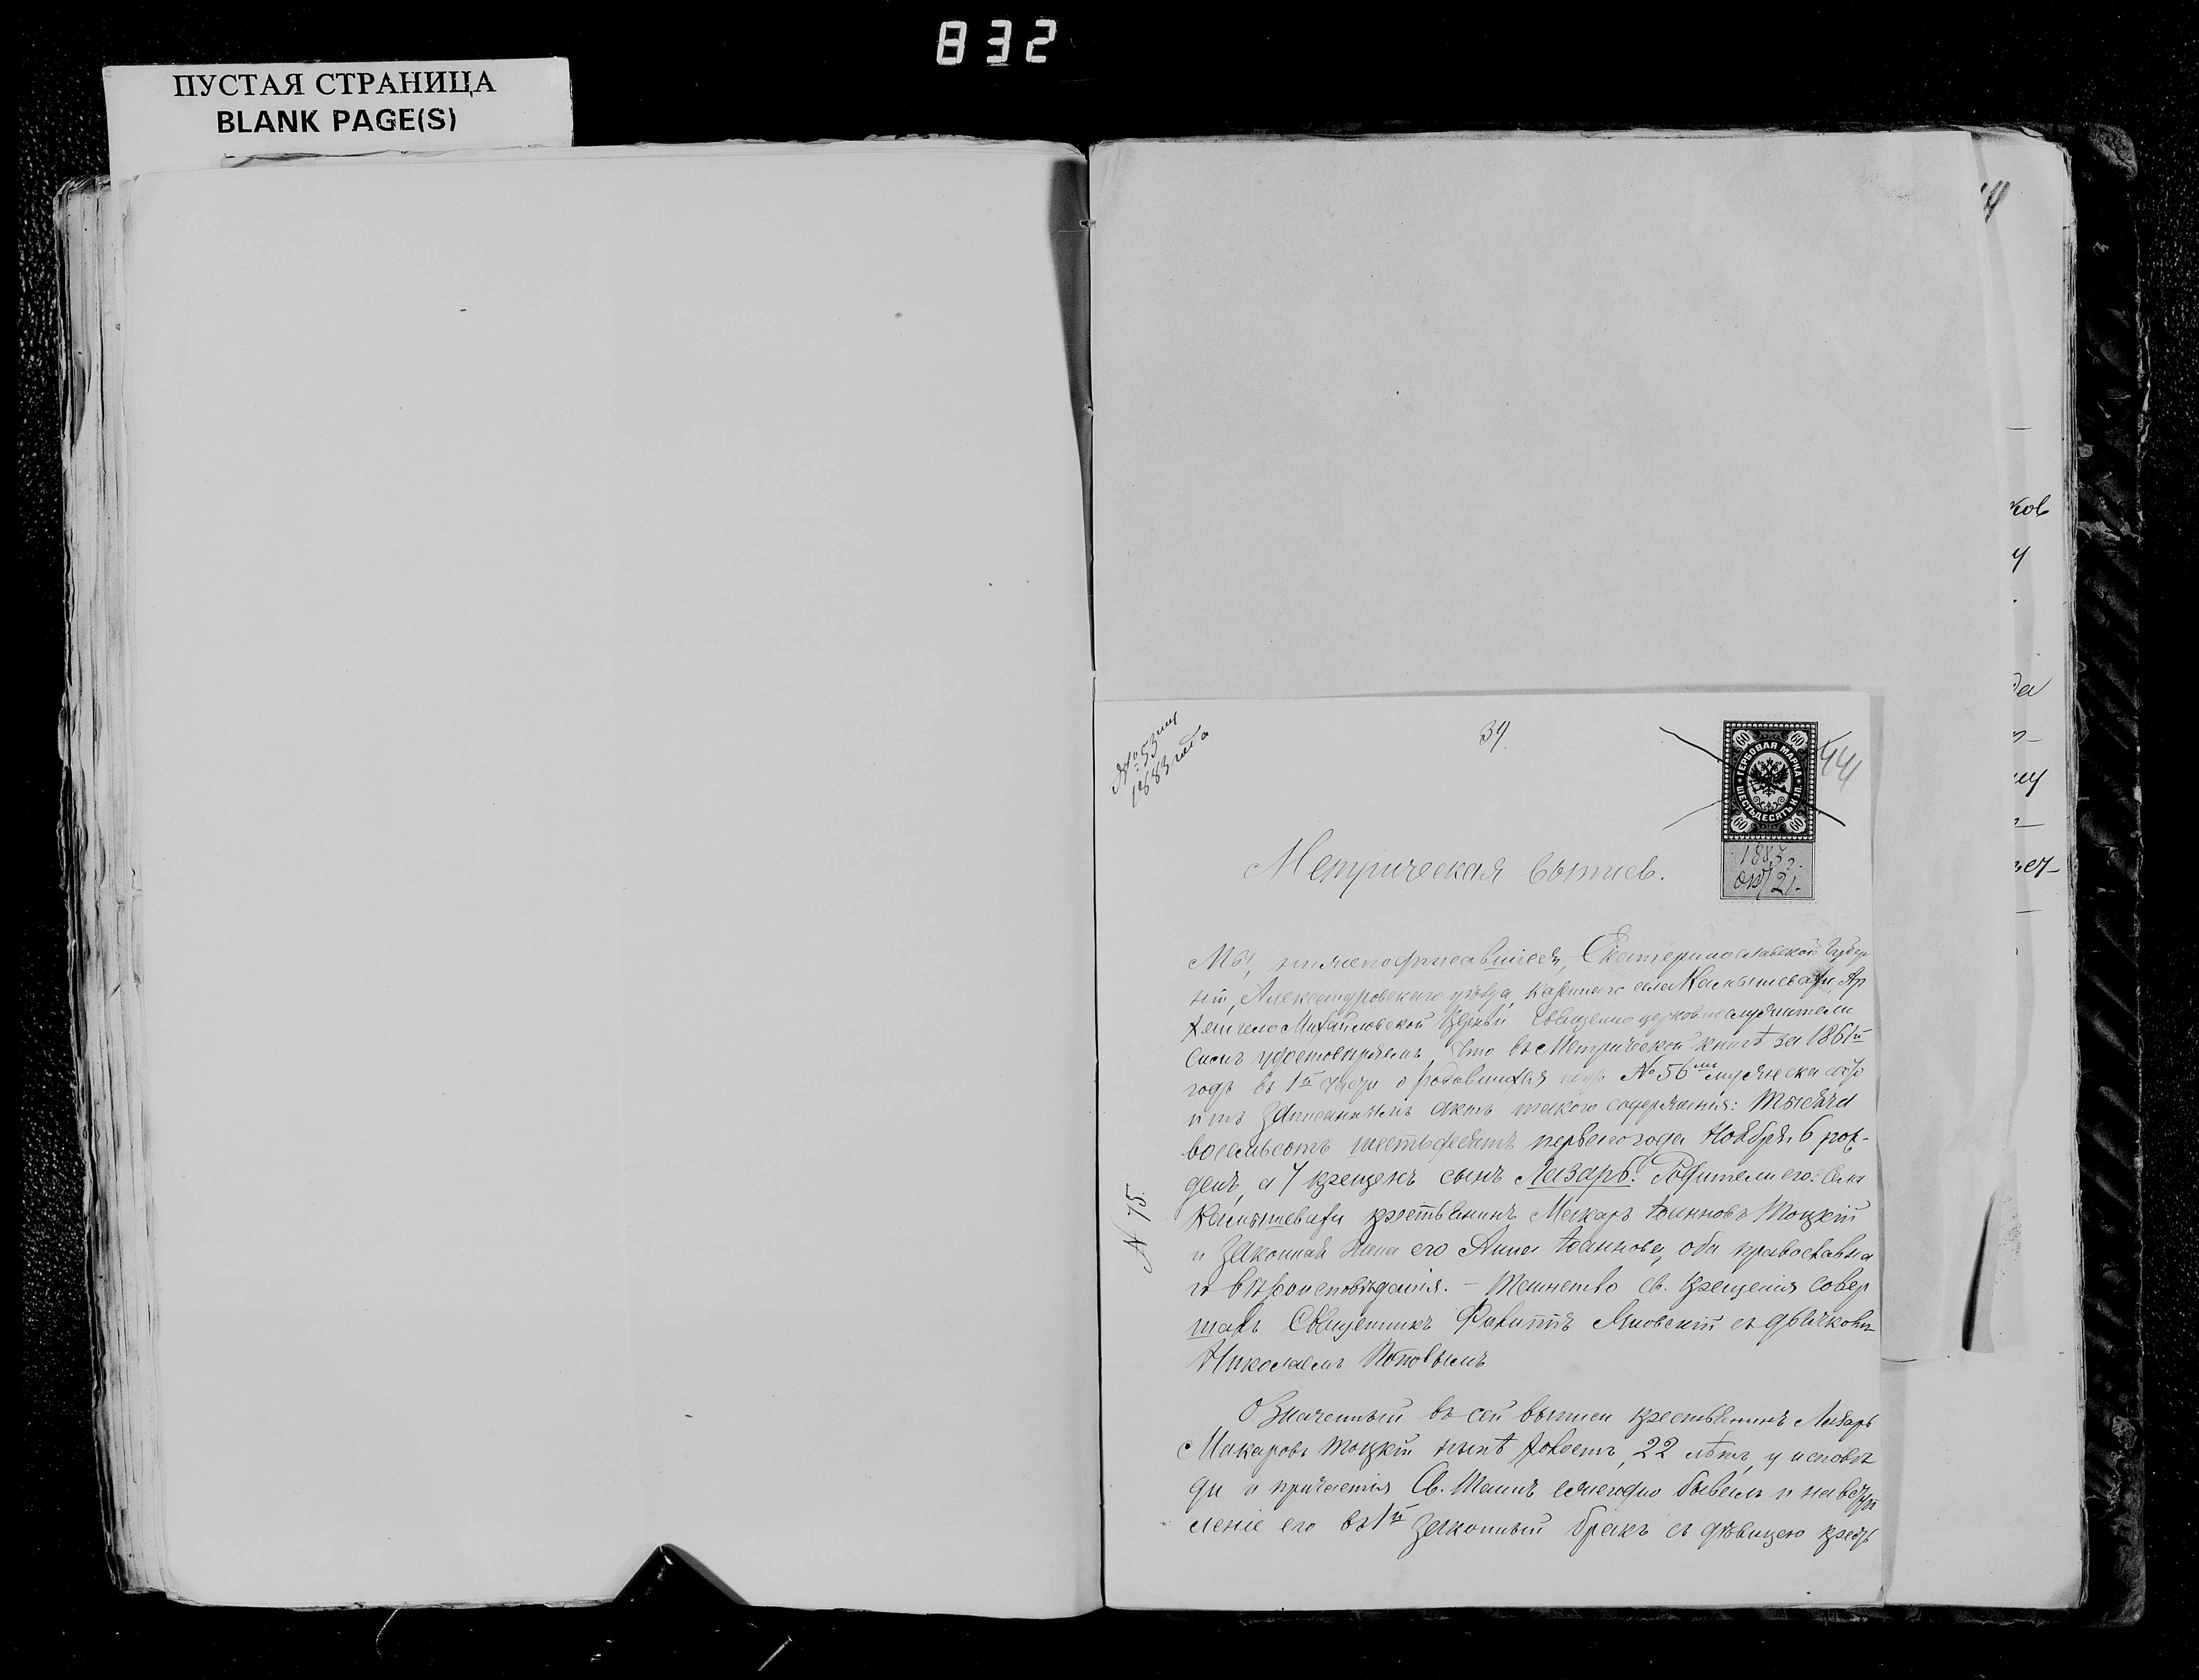 832
ПУСТАЯ СТРАНИЦА
BLANK PAGE(S)
№ 53ій
1883 года
39.
441
60 60
ГЕРБОВАЯ МАРКА
ШЕСТЬДЕСЯТЪ КОП.
60 60
1883 г.
окт 21.
Метрическая выпись.
Мы, нижеподписавшіеся, Екатеринославской Губер
ніи, Александровскаго уѣзда, казеннаго села Камышевахи, Ар
хангело Михайловской Церкви Священно церковнослужители
симъ удостовѣряемъ, что въ Метрической книгѣ за 1861й
годъ въ 1й части о родившихся подъ № 56мъ мужеска пола
записанъ актъ такого содержанія: тысяча
восемьсотъ шестьдесятъ перваго года Ноября 6 рож-
денъ, а 7 крещенъ сынъ Лазарь. Родители его: села
Камышевахи крестьянинъ Макаръ Іоанновъ Тоцкій
и законная жена его Анна Іоаннова, оба православна
го вѣроисповѣданія. – Таинство св. крещенія совер
шалъ Священникъ Филиппъ Яновскій съ дьячкомъ
Николаемъ Поповымъ
№ 75.
Означенный въ сей выписи крестьянинъ Лазарь
Макаровъ Тоцкій нынѣ холостъ, 22 лѣтъ, у исповѣ
ди и причастія Св. Таинъ ежегодно бываетъ и на вступ
леніе его въ 1й законный бракъ съ дѣвицею крест
ков
у
да